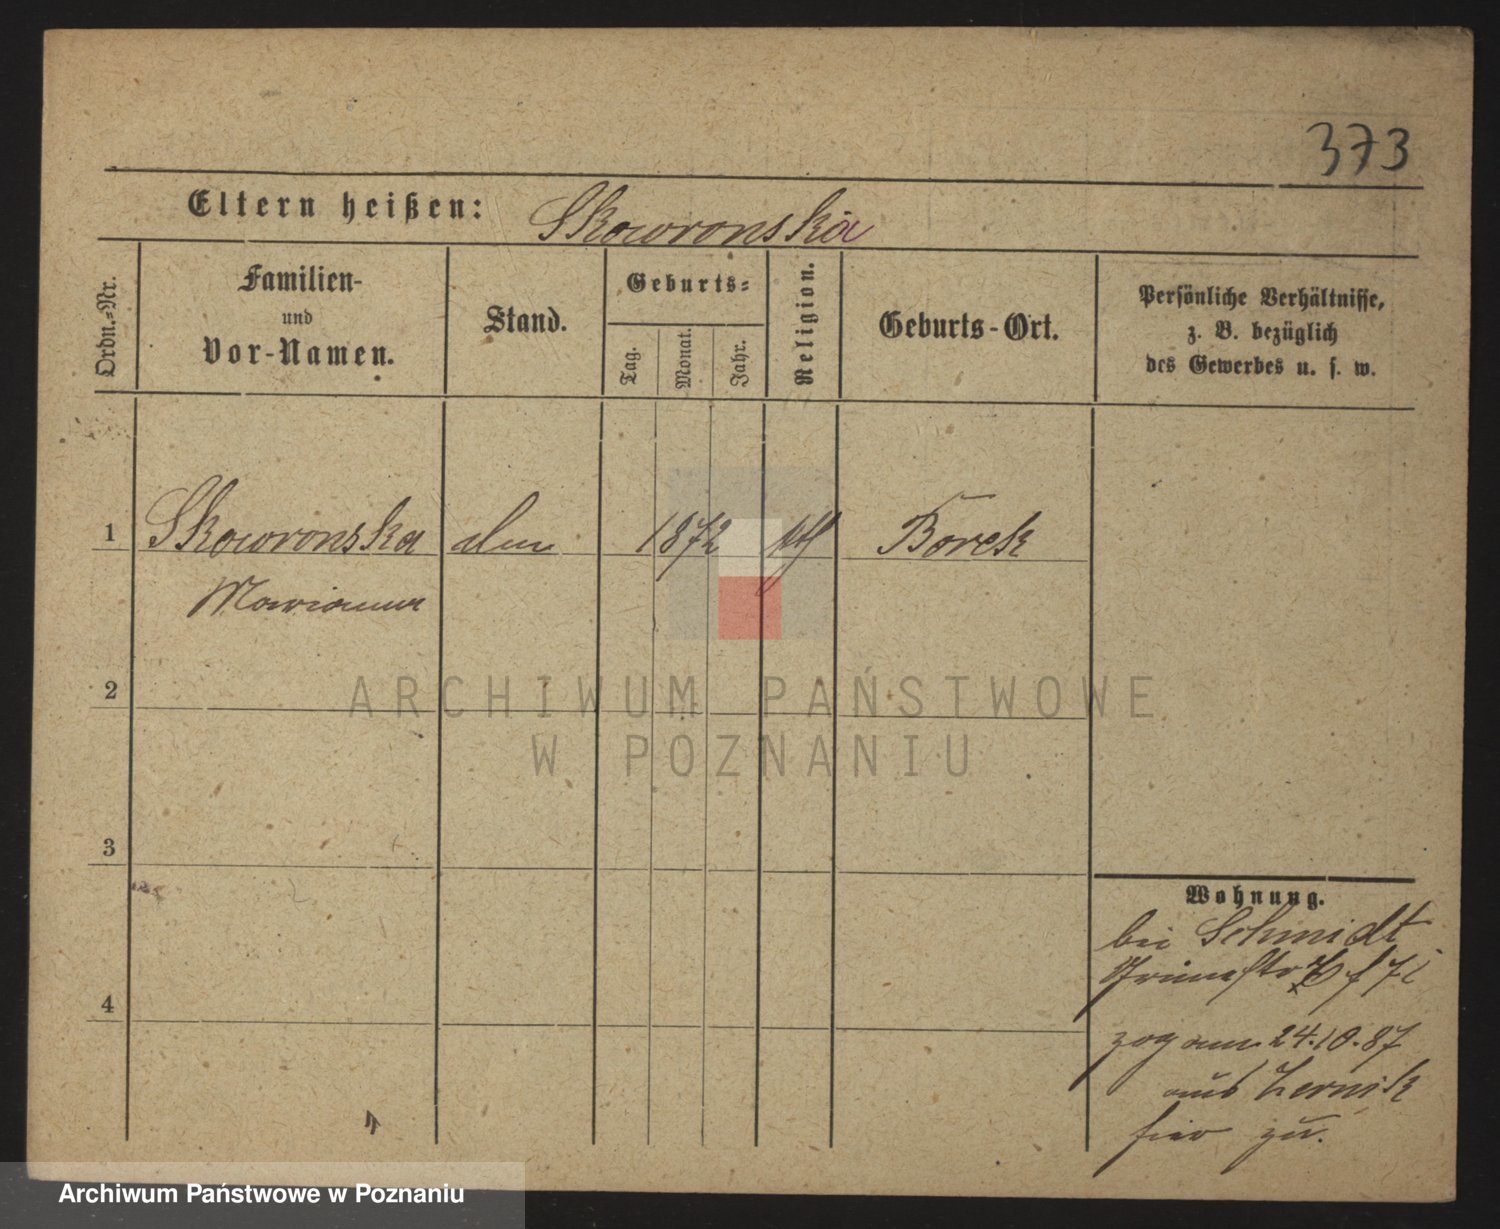 373
Eltern heißen: Skowronska
Ordn.=Nr.
Familien-
und
Vor-Namen.
Stand.
Geburts=
Tag.
Monat.
Jahr.
Religion.
Geburts-Ort.
Persönliche Verhältnisse,
z. B. bezüglich
des Gewerbes u. s. w.
1 Skowronska 1872 kth Borek
Marianna
2
ARCHIWUM PAŃSTWOWE
W POZNANIU
3
Wohnung.
bei Schmidt
4
zog am 24.10.87
aus Zernik
hier zu.
Archiwum Państwowe w Poznaniu